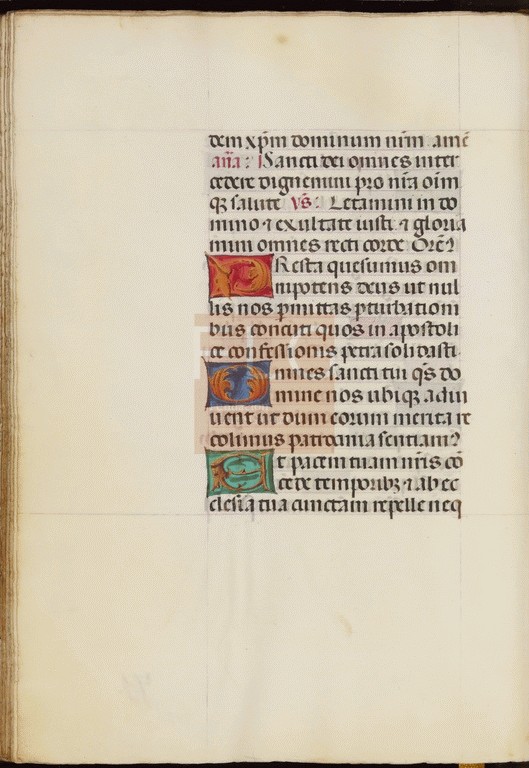 dem xp̃m dominum nr̃m amẽ
añã: Sancti dei omnes inter
cedere dignemini pro nr̃a oĩm
qz salute vs̃: Letamini in do
mino ⁊ exultate iusti ⁊ gloria
mini omnes recti corde Orẽ?
PResta quesumus om
nipotens deus ut nul
lis nos p̱mittas p̱turbationi
bus concuti quos in apostoli
ce confessionis petra solidasti
OMnes sancti tui qs̃ do
mine nos ubiqz adiu
uent ut dum eorum merita re
colimus patrocinia sentiam?
ET pacem tuam nr̃is cõ
cede temporibz ⁊ ab ec
clesia tua cunctam repelle neq